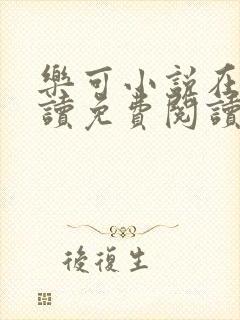 樂可小說在
讀免費閱讀
後復生